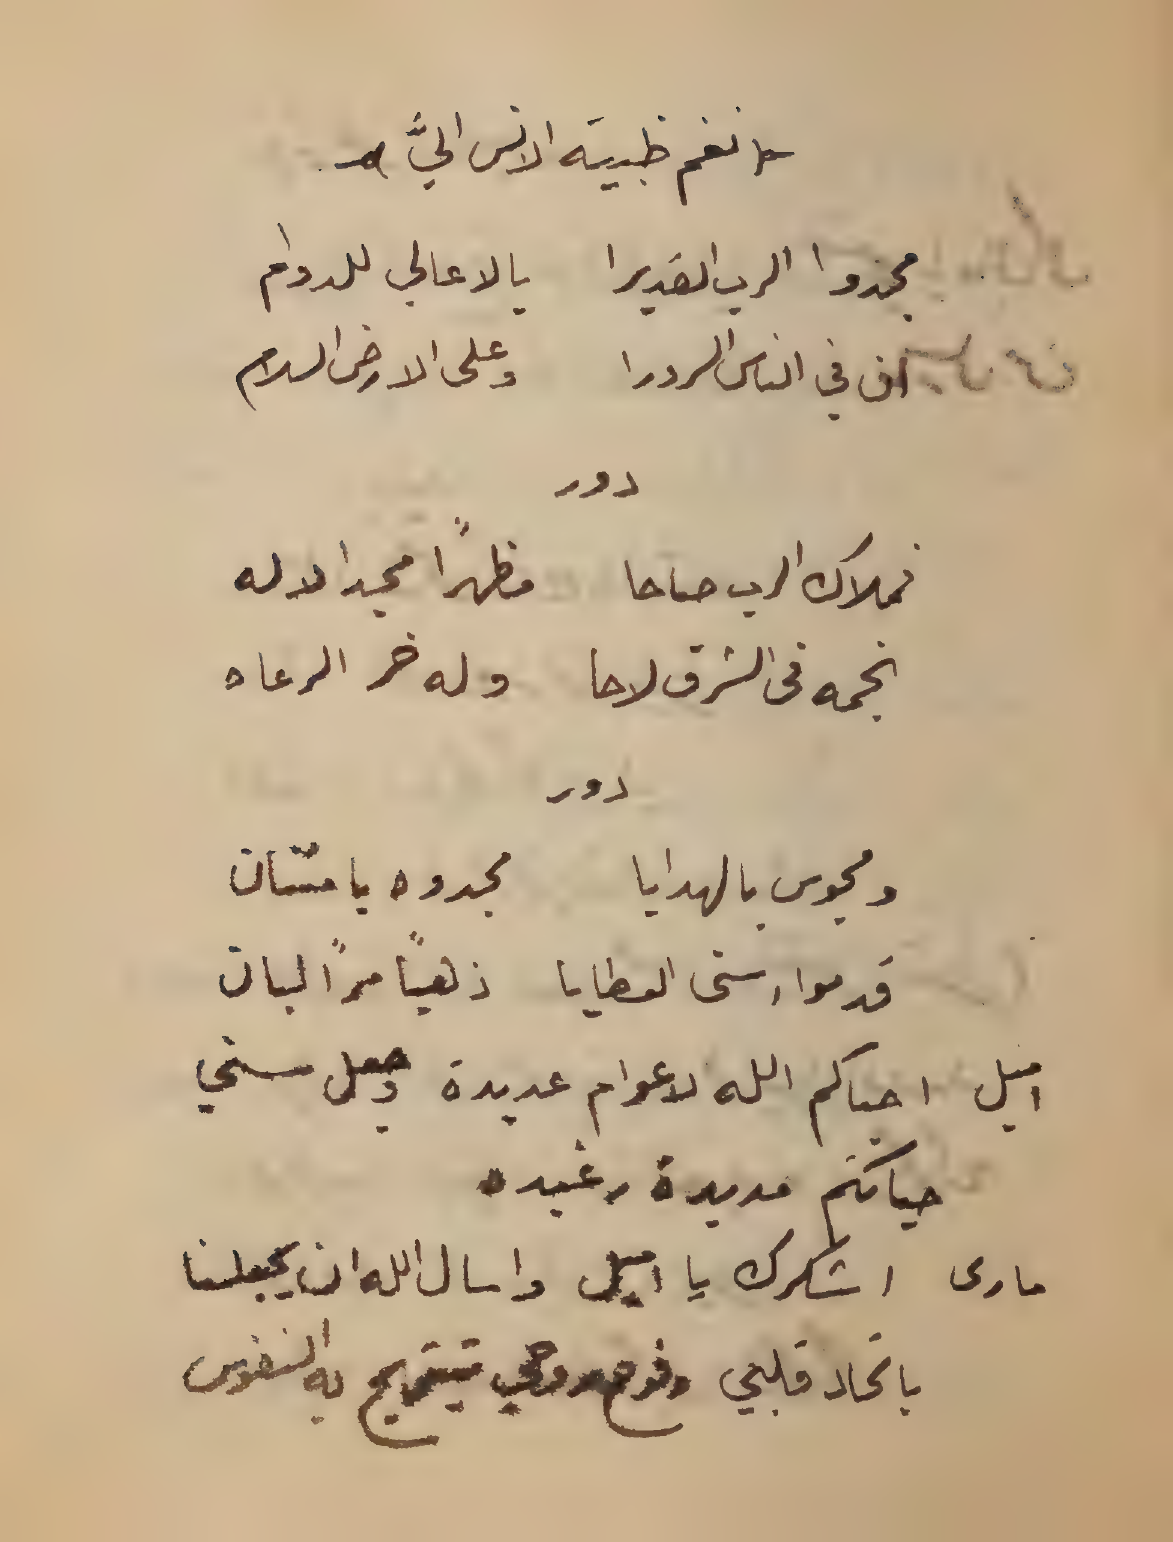 نغم ظبية الانس اليَّ
مجدوا الرب القديرا يالاعالي للدوام
ان في الناس السرورا وعلى الارض السلام
دور
فملاك الرب صاحا مظهرًا مجد الاله
نجمه فى الشرق لاحا وله خر الرعاه
دور
ومجوس بالهدايا مجدوه بامتنان
قدموا سنى العطايا ذهبًا مرًا لبان
اميل احياكم الله لاعوام عديدة وجعل سني
حياتكم مديدة رغيده
مارى اشكرك يا اميل واسال الله ان يجعلنا
باتحاد قلبي به النفوس